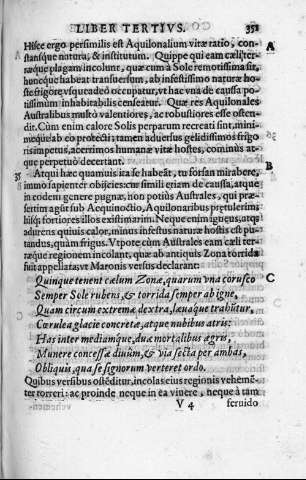 LIBER TERTIVS. 351
Hisce ergo persimilis est Aquilonalium vitæ ratio, con-
stansque natura, & institutum. Quippe qui eam cæli, ter-
ræque plagam incolunt, quæ cum à Sole remotissima sit,
A
nuncque habeat transuersum, ab infestissimo naturæ ho-
ste frigore vsqueadeò occupatur, vt hac vna de caussa po-
tissimum inhabitabilis censeatur. Quæ res Aquilonales
Australibus multò valentiores, ac robustiores esse osten-
dit. Cùm enim calore Solis perparum recreati sint, mini-
meque ab eo protecti: tamen aduersus gelidissimos frigo
ris impetus, acerrimos humanæ vitæ hostes, cominus at-
que perpetuò decertant.
B
35 Atqui hæc quamuis ita se habeāt, tu forsan mirabere,
immo sapienter obijcies: cum simili etiam de caussa, atque
in codem genere pugnæ, non potiùs Australes, qui præ-
sertim agūt sub Aequinoctio, Aquilonaribus pretulerim:
hisq; fortiores illos existimarim. Neque enim igneus, atq;
adurens quiuis calor, minus infestus naturæ hostis est pu-
tandus, quàm frigus. Vtpote cùm Australes eam cæli ter-
ræque regionem incolant, quæ ab antiquis Zona torrida
fuit appellata, vt Maronis versus declarant:
Quinque tenent cælum Zonæ, quarum vna corusco
C
Semper Sole rubens, & torrida semper ab igne,
Quam circum extremæ dextra, læuaque trahūtur,
Cærulea glacie concretæ, atque nubibus atris:
Has inter mediamque, duæ mortalibus ægris,
Munere concessæ diuûm, & via secta per ambas,
Obliquis, qua se signorum verteret ordo.
Quibus versibus ostēditur, incolas eius regionis vehemē-
ter torreri: ac proinde neque in ea viuere, neque à tam
V 4 feruido